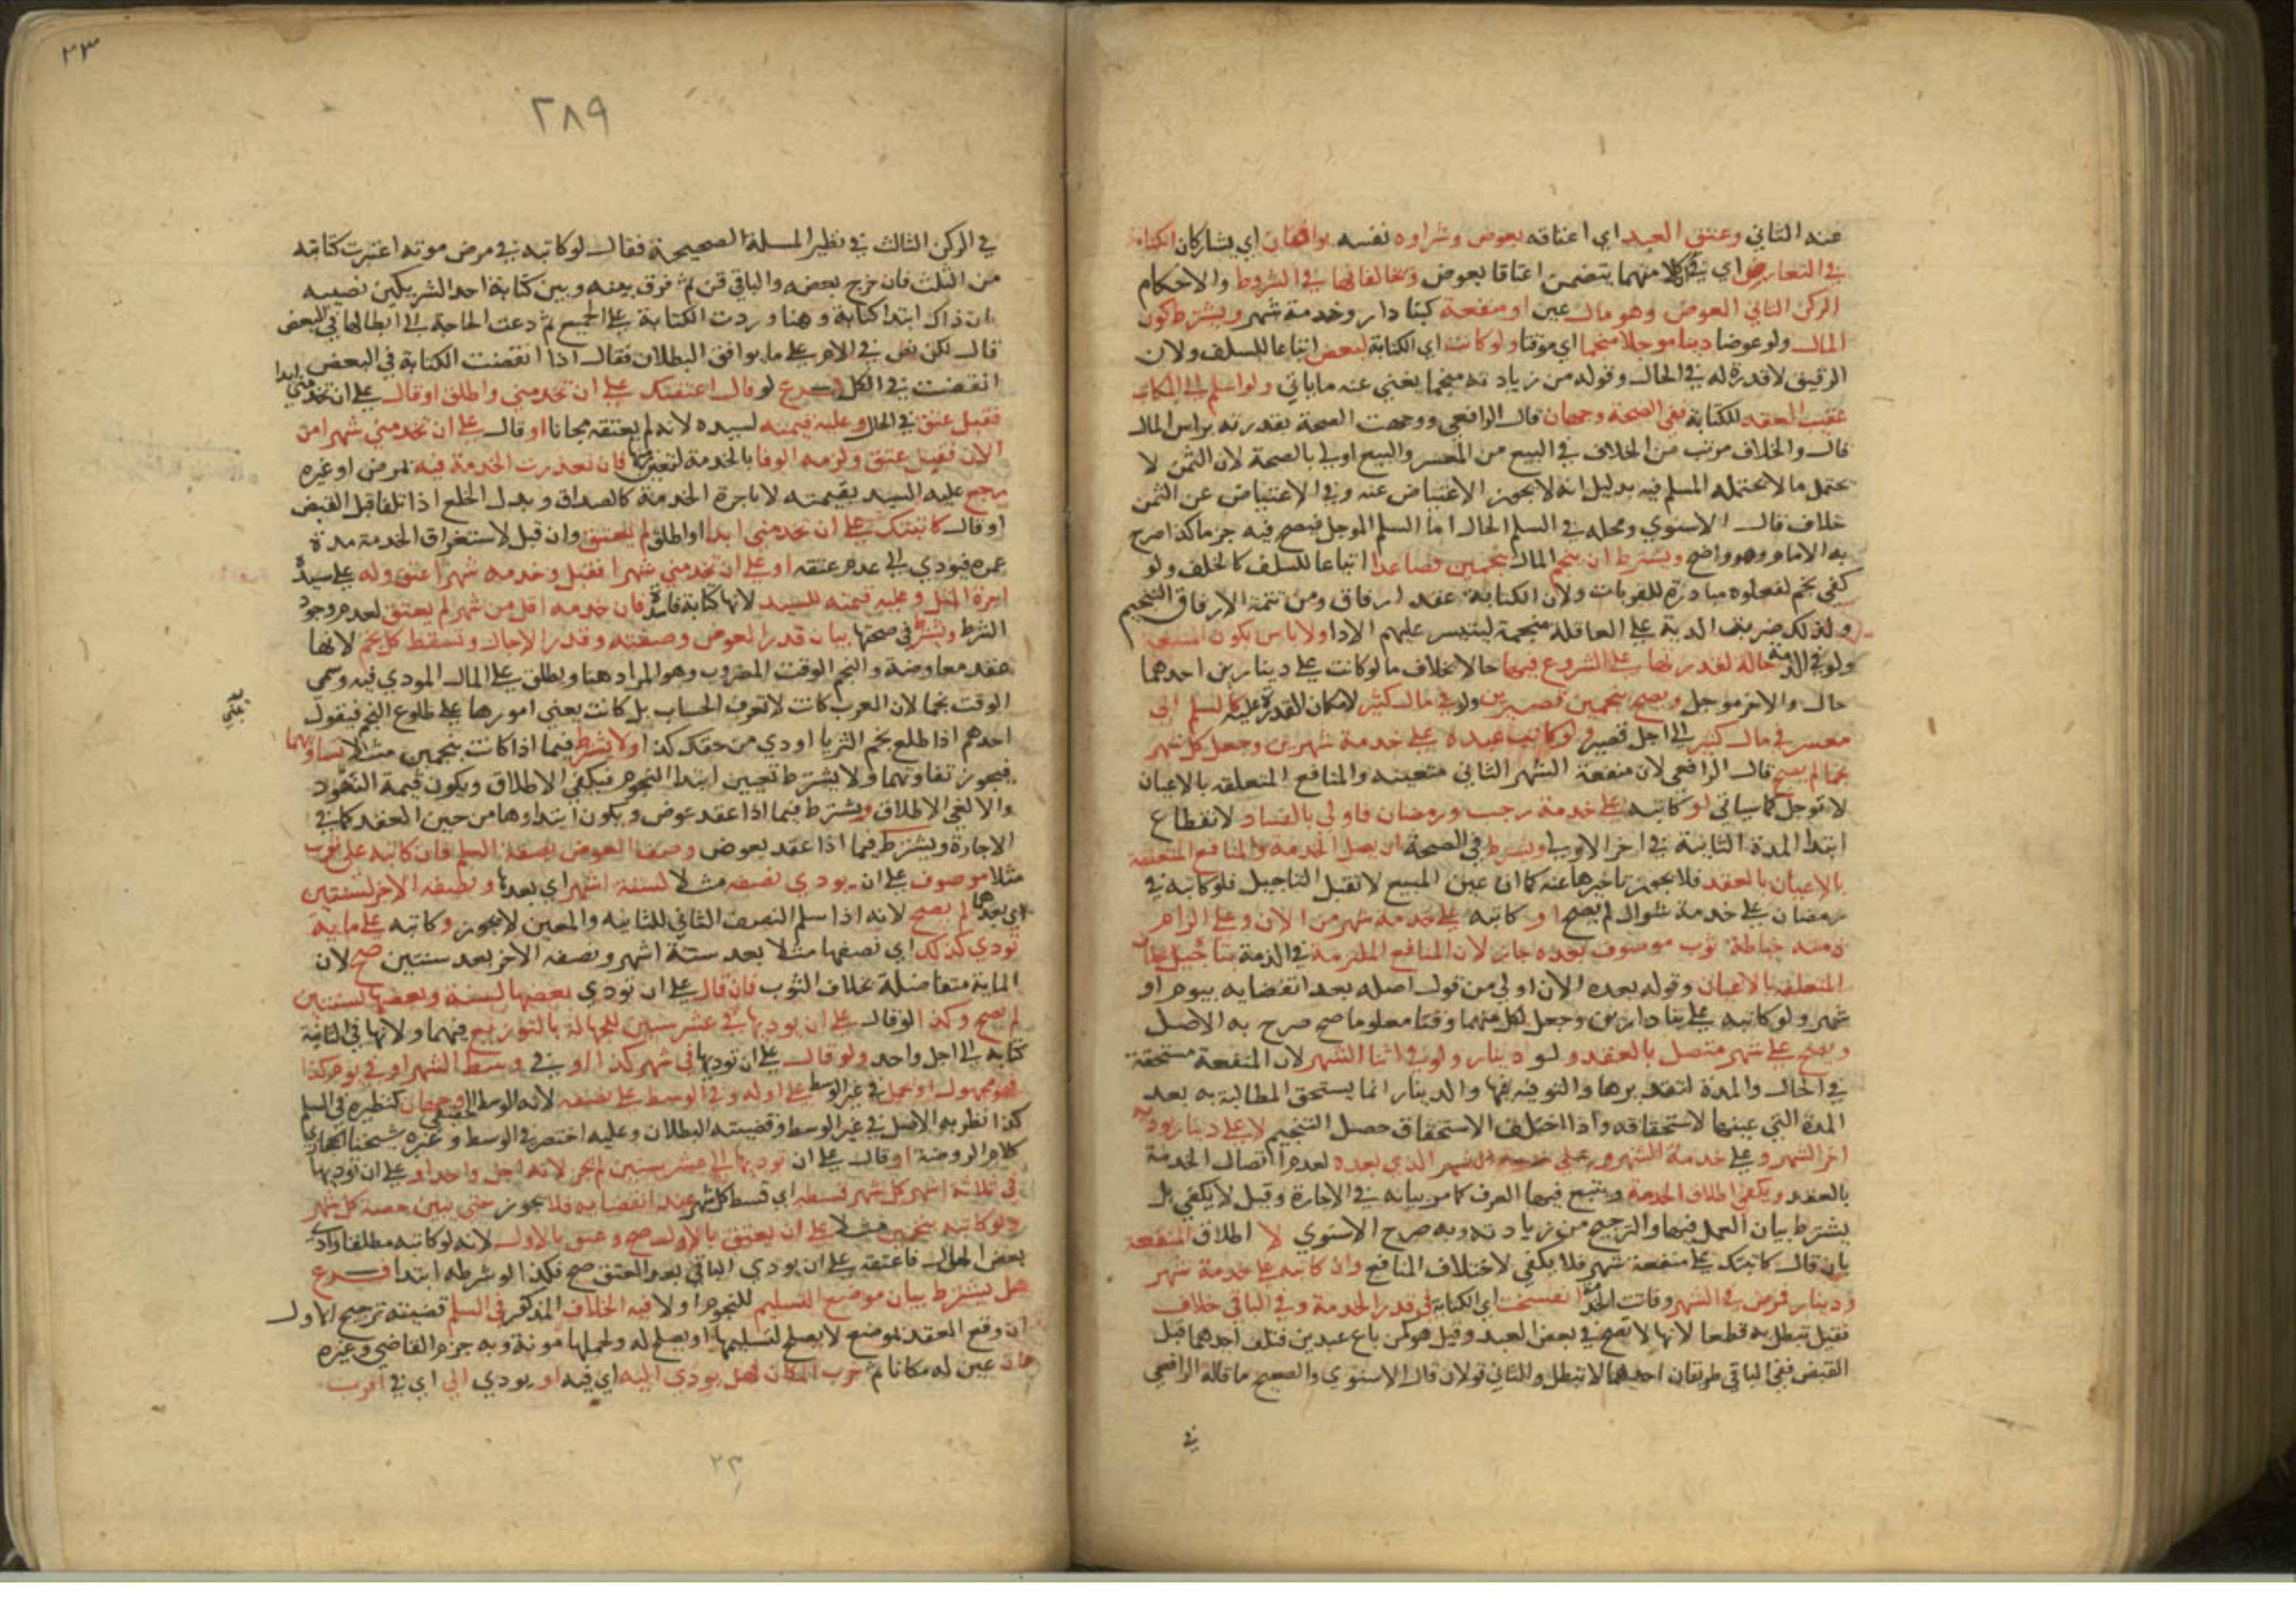 عنه الثاني وعتق العبد اي اعتاقه بعوض وشراوه نفسه يوافقان اي يشاركان الكتابة
في التعارض اي في ان كلا منهما يتضمن اعتاقا بعوض ويخالفانها في الشروط والاحكام
الركن الثاني العوض وهو مال عين او منفعة كبنا دار وخدمة شهر ويشترط كون
المال ولو عوضا دينا موجلا منجما اي موقتا ولو كانت اي الكتابة لبعض اتباعا للسلف ولان
الرقيق لا قدرة له في الحال وقوله من زيادته منجما يغني عنه ما ياتي ولو اسلم الى المكاتب
عقيب العقد للكتابة ففي الصحة وجهان قال الرافعي ووجهت الصحة بقدرته براس المال
قال والخلاف مرتب من الخلاف في البيع من المعسر والبيع اولى بالصحة لان الثمن لا
يحتمل ما لا يحتمله المسلم فيه بدليل انه لا يجوز الاعتياض عنه وفي الاعتياض عن الثمن
خلاف قال الاسنوي ومحله في السلم الحال اما السلم الموجل فيصح فيه جزما كذا صرح
به الامام وهو واضح ويشترط ان ينجم المال بنجمين فصاعدا اتباعا للسلف كالخلف ولو
كفى نجم لفعلوه مبادرة للقربات ولان الكتابة عقد ارفاق ومن تتمة الارفاق التنجيم
ولذلك ضربت الدية على العاقلة منجمة ليتيسر عليهم الادا ولا باس بكون المنفعة
ولو في الذمة حالة لقدرتها على الشروع فيها حالا بخلاف ما لو كانت على دينارين احدهما
حال والاخر موجل ويصح بنجمين قصيرين ولو في مال كثير لامكان القدرة عليه كالسلم الى
معسر في مال كثير الى اجل قصير فلو كاتب عبده على خدمة شهرين وجعل كل شهر
نجما لم يصح قال الرافعي لان منفعة الشهر الثاني متعينه والمنافع المتعلقه بالاعيان
لا توجل كما سياتي لو كاتبه على خدمة رجب ورمضان فاولى بالفساد لانقطاع
ابتدا المدة الثانية في اخر الاولى ويشترط في الصحة ان يصل الخدمة والمنافع المتعلقة
بالاعيان بالعقد فلا يجوز تاخيرها عنه كما ان عين المبيع لا تقبل التاجيل فلو كاتبه في
رمضان على خدمة شوال لم يصح او كاتبه على خدمة شهر من الان وعلى الزام
ذمته خياطة ثوب موصوف بعده جاز لان المنافع الملتزمة في الذمة يتاجيل
المتعلقه بالاعيان وقوله بعده الان اولى من قول اصله بعد انقضايه بيوم او
شهر ولو كاتبه على بنا دارين وجعل لكل منهما وقتا معلوما صح صرح به الاصل
ويصح على شهر متصل بالعقد ولو دينار ولو في اثنا الشهر لان المنفعة مستحقة
في الحال والمدة لتقديرها والتوفيه فيها والدينار انما يستحق المطالبة به بعد
المدة التي عينها لاستحقاقه واذا اختلف الاستحقاق حصل التنجيم لا على دينار يوديه
اخر الشهر وعلى خدمة الشهر الذي بعده لعدم اتصال الخدمة
بالعقد ويكفي اطلاق الخدمة ويتبع فيها العرف كما مر بيانه في الاجارة وقيل لا يكفي بل
يشترط بيان العمل فيها والترجيح من زيادته وبه صرح الاسنوي لا اطلاق المنفعة
بان قال كاتبتك على منفعة شهر فلا يكفي لاختلاف المنافع وان كاتبه على خدمة شهر
ودينار فمرض في الشهر وفاتت الخدمة انفسخت اي الكتابة في قدر الخدمة وفي الباقي خلاف
فقيل تبطل به قطعا لانها لا تصح في بعض العبد وقيل هو كمن باع عبدين فتلف احدهما قبل
القبض ففي الباقي طريقان احدهما لا تبطل والثاني قولان قال الاسنوي والصحيح ما قاله الرافعي
في
٢٣
٢٨٩
في الركن الثالث في نظير المسلة الصحيحة فقال لو كاتبه في مرض موته اعتبرت كتابته
من الثلث فان خرج بعضه والباقي قن ثم فرق بينه وبين كتابة احد الشريكين نصيبه
بان ذاك ابتدا كتابة وهنا وردت الكتابة على الجميع ثم دعت الحاجة الى ابطالها في البعض
قال لكن نص في الام على ما يوافق البطلان فقال اذا انقضت الكتابة في البعض
انقضت في الكل فرع لو قال اعتقتك على ان تخدمني واطلق او قال على ان تخدمني ابدا
فقبل عتق في الحال وعليه قيمته لسيده لانه لم يعتقه مجانا او قال على ان تخدمني شهرا من
الان فقبل عتق ولزمه الوفا بالخدمة لتعينها فان تعذرت الخدمة فيه لمرض او غيره
رجع عليه السيد بقيمته لا باجرة الخدمة كالصداق وبدل الخلع اذا تلفا قبل القبض
او قال كاتبتك على ان تخدمني ابدا او اطلق لم يعتق وان قبل لاستغراق الخدمة مدة
عمره فيودي الى عدم عتقه او على ان تخدمني شهرا فقبل وخدمه شهرا عتق وله على سيده
اجرة المثل وعليه قيمته للسيد لانها كتابة فاسدة فان خدمه اقل من شهر لم يعتق لعدم وجود
الشرط ويشترط في صحتها بيان قدر العوض وصفته وقدر الاجال وتسقط كل نجم لانها
عقد معاوضة والنجم الوقت المضروب وهو المراد هنا ويطلق على المال المودى فيه وسمي
الوقت نجما لان العرب كانت لا تعرف الحساب بل كانت يعني امورها على طلوع النجم فيقول
احدهم اذا طلع نجم الثريا اودي من حقك كذا ولا يشترط فيما اذا كانت بنجمين مثلا تساويهما
فيجوز تفاوتهما ولا يشترط تعيين ابتدا النجوم فيكفي الاطلاق ويكون قيمة النقود
والا لغي الاطلاق ويشترط فيما اذا عقد عوض ويكون ابتداوها من حين العقد كما في
الاجارة ويشترط فيما اذا عقد بعوض وصف العوض بصفة السلم فان كاتبه على ثوب
مثلا موصوف على ان يودي نصفه مثلا لستة اشهر اي بعدها ونصفه الاخر لسنتين
اي بعدهما لم يصح لانه اذا سلم النصف الثاني للثانيه والمعين لا يجوز وكاتبه على ماية
تودي كذلك اي نصفها مثلا بعد ستة اشهر ونصفه الاخر بعد سنتين صح لان
الماية متفاضلة بخلاف الثوب فان قال على ان تودي بعضها لسنة وبعضها لسنتين
لم يصح وكذا لو قال على ان يوديها في عشر سنين للجهالة بالتوزيع فيهما ولانها في الثانية
كتابه الى اجل واحد ولو قال على ان توديها في شهر كذا او في وسط الشهر او في يوم كذا
فهو مجهول او يحمل في غير الوسط على اوله وفي الوسط على نصفه لانه الوسط الحقيقي وجهان كنظيره في السلم
كذا نظر به الاصل في غير الوسط وقضيته البطلان وعليه اختصر في الوسط وغيره شيخنا الحجازي
كلام الروضة او قال على ان توديها الى عشر سنين لم يجز لانه اجل واحد او على ان توديها
في ثلاثة اشهر كل شهر قسطه اي قسط كل شهر عند انقضايه فلا يجوز حتى يبين حصة كل شهر
ولو كاتبه بنجمين مثلا على ان يعتق بالاول صح وعتق بالاول لانه لو كاتبه مطلقا وادى
بعض المال فاعتقه على ان يودي الباقي بعد العتق صح فكذا لو شرطه ابتدا فرع
هل يشترط بيان موضع التسليم للنجوم او لا فيه الخلاف المذكور في السلم قضيته ترجيح الاول
ان وقع العقد بموضع لا يصلح لتسليمها او يصلح له ولحملها مونة وبه جزم القاضي وغيره
فان عين له مكانا ثم خرب المكان فهل يودي اليه اي فيه او يودي الى اي في اقرب
٢٣